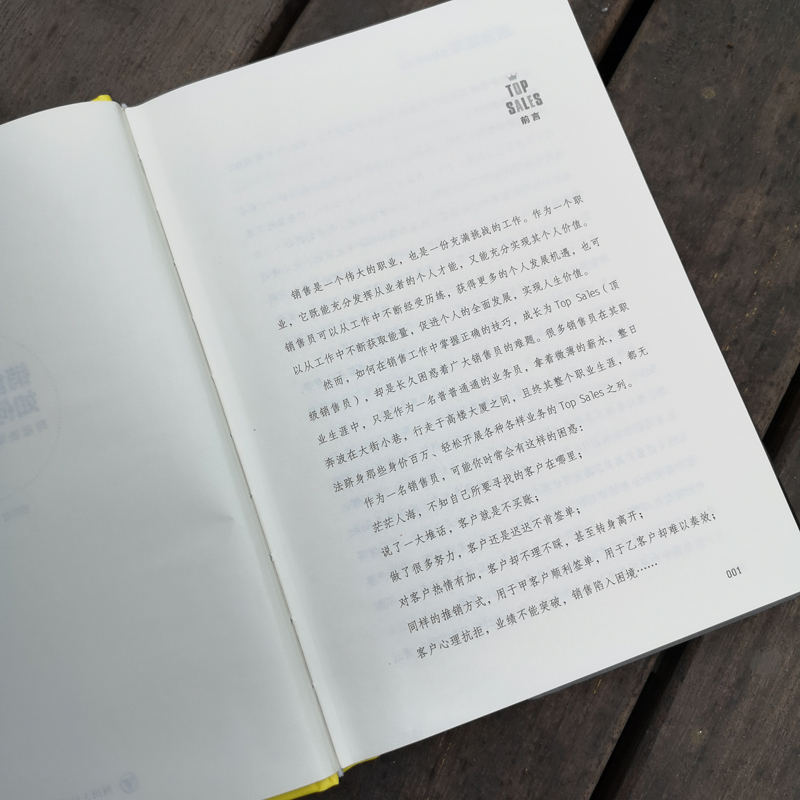 TOP
SALES
前言
销售是一个伟大的职业，也是一份充满挑战的工作。作为一个职
业，它既能充分发挥从业者的个人才能，又能充分实现其个人价值。
销售员可以从工作中不断经受历练，获得更多的个人发展机遇，也可
以从工作中不断获取能量，促进个人的全面发展，实现人生价值。
然而，如何在销售工作中掌握正确的技巧，成长为Top Sales（顶
级销售员），却是长久困惑着广大销售员的难题。很多销售员在其职
业生涯中，只是作为一名普普通通的业务员，拿着微薄的薪水，整日
奔波在大街小巷，行走于高楼大厦之间，且终其整个职业生涯，都无
法跻身那些身价百万、轻松开展各种各样业务的Top Sales之列。
作为一名销售员，可能你时常会有这样的困惑：
茫茫人海，不知自己所要寻找的客户在哪里；
说了一大堆话，客户就是不买账；
做了很多努力，客户还是迟迟不肯签单；
对客户热情有加，客户却不理不睬，甚至转身离开；
同样的推销方式，用于甲客户顺利签单，用于乙客户却难以奏效；
客户心理抗拒，业绩不能突破，销售陷入困境……
001